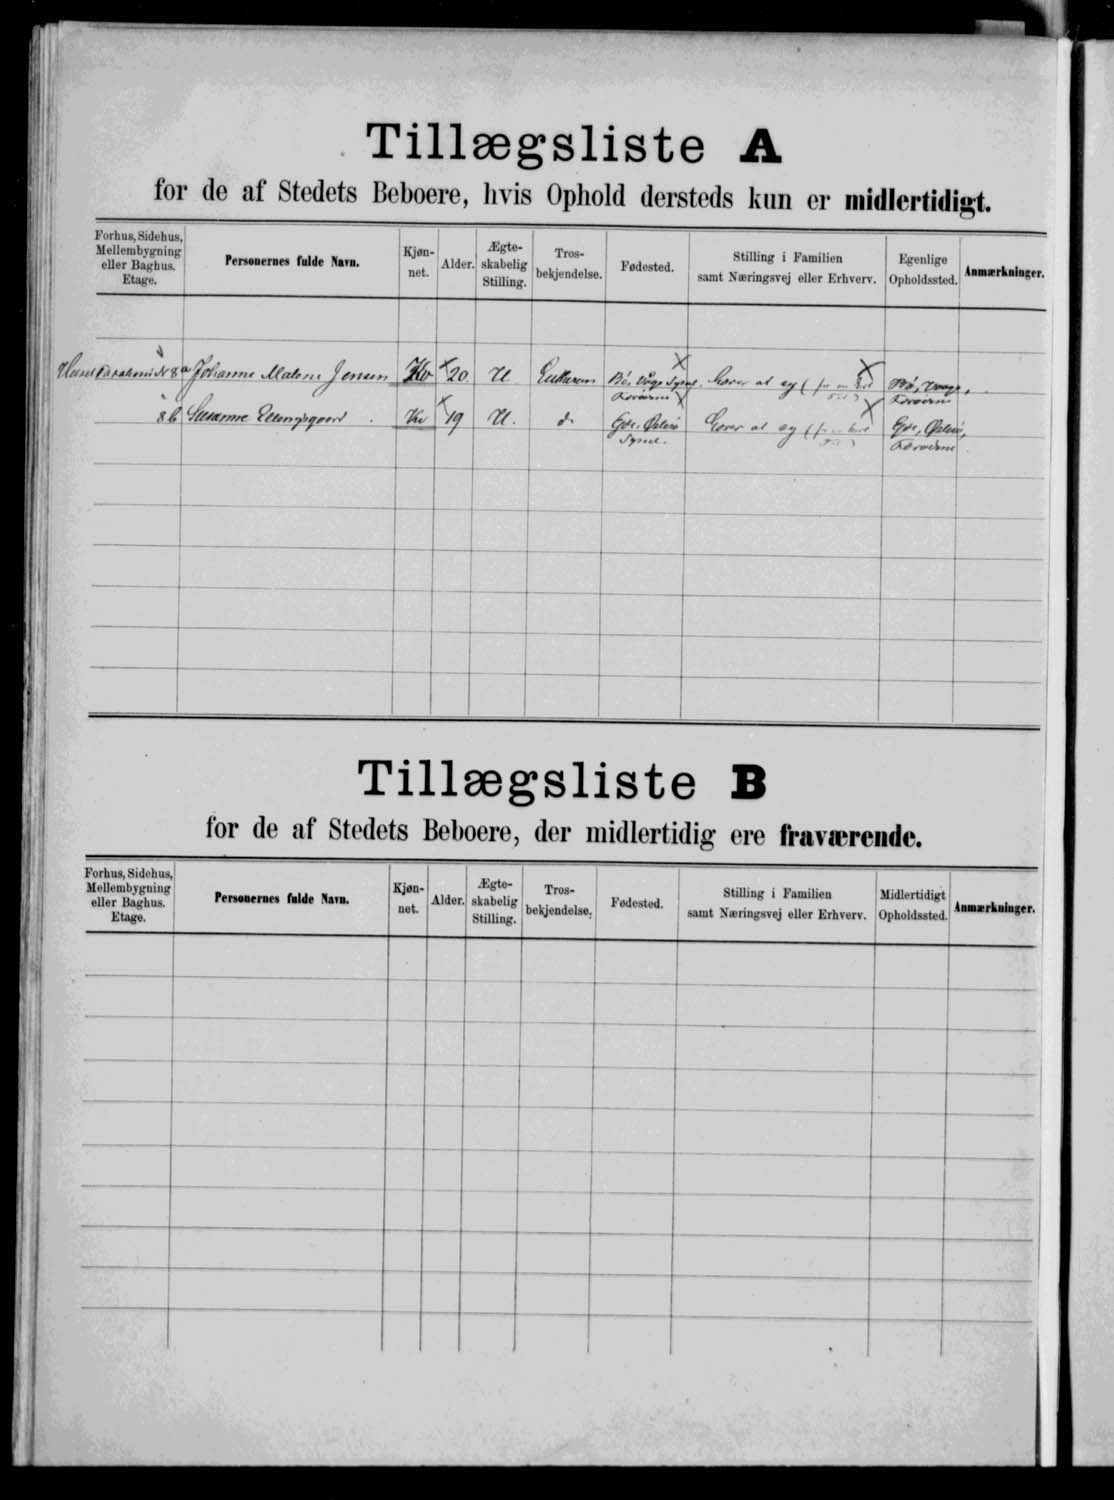 Tillægsliste A
for de af Stedets Beboere, hvis Ophold dersteds kun er midlertidigt.
Forhus, Sidehus, Mellembygning eller Baghus. Etage.
Personernes fulde Navn.
Kjøn-
net.
Alder.
Ægte-
skabelig
Stilling.
Tros-
bekjendelse.
Fødested.
Stilling i Familien
samt Næringsvej eller Erhverv.
Egenlige
Opholdssted.
Anmærkninger.
8a Johanne Malene Jensen Kv 20 U
Færøerne
8b Susanne Kv 19 U. do
Synd.
Færøerne
Tillægsliste B
for de af Stedets Beboere, der midlertidig ere fraværende.
Forhus, Sidehus,
Mellembygning
eller Baghus.
Etage.
Personernes fulde Navn.
Kjøn-
net.
Alder.
Ægte-
skabelig
Stilling.
Tros-
bekjendelse.
Fødested.
Stilling i Familien
samt Næringsvej eller Erhverv.
Midlertidigt
Opholdssted.
Anmærkninger.